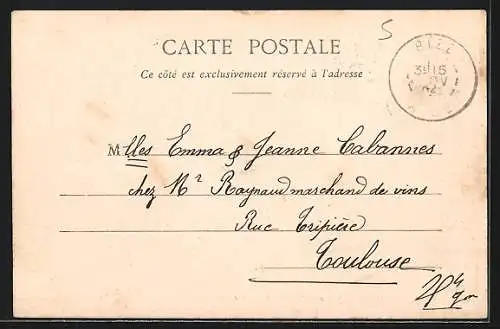 5
CARTE POSTALE
Ce côté est exclusivement réservé à l'adresse
Mlles Emma & Jeanne Cabannes
chez Mr Raynaud marchand de vins
Rue Tripière
Toulouse